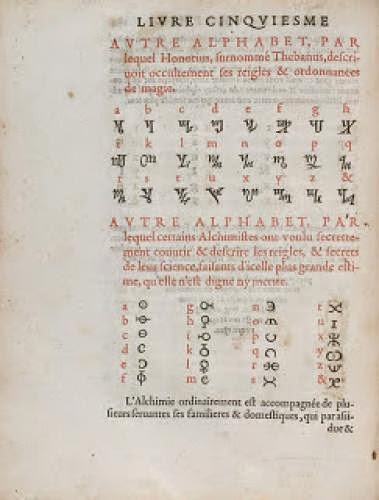 LIVRE CINQVIESME
AVTRE ALPHABET, PAR
lequel Honorius, surnommé Thebanus, descri-
uoit occultement ses reigles & ordonnances
de magie.
a b c d e f g h
i k l m n o p q
r s t u x y z &
AVTRE ALPHABET, PAR
lequel certains Alchimistes ont voulu secrette-
ment couurir & descrire les reigles, & secrets
de leur science, faisants d'icelle plus grande esti-
me, qu'elle n'est digne ny merite.
a g n t
b h o u
c i p x
d k q y
e l r z
f m s &
L'Alchimie ordinairement est accompagnée de plu-
sieurs seruantes ses familieres & domestiques, qui
due &